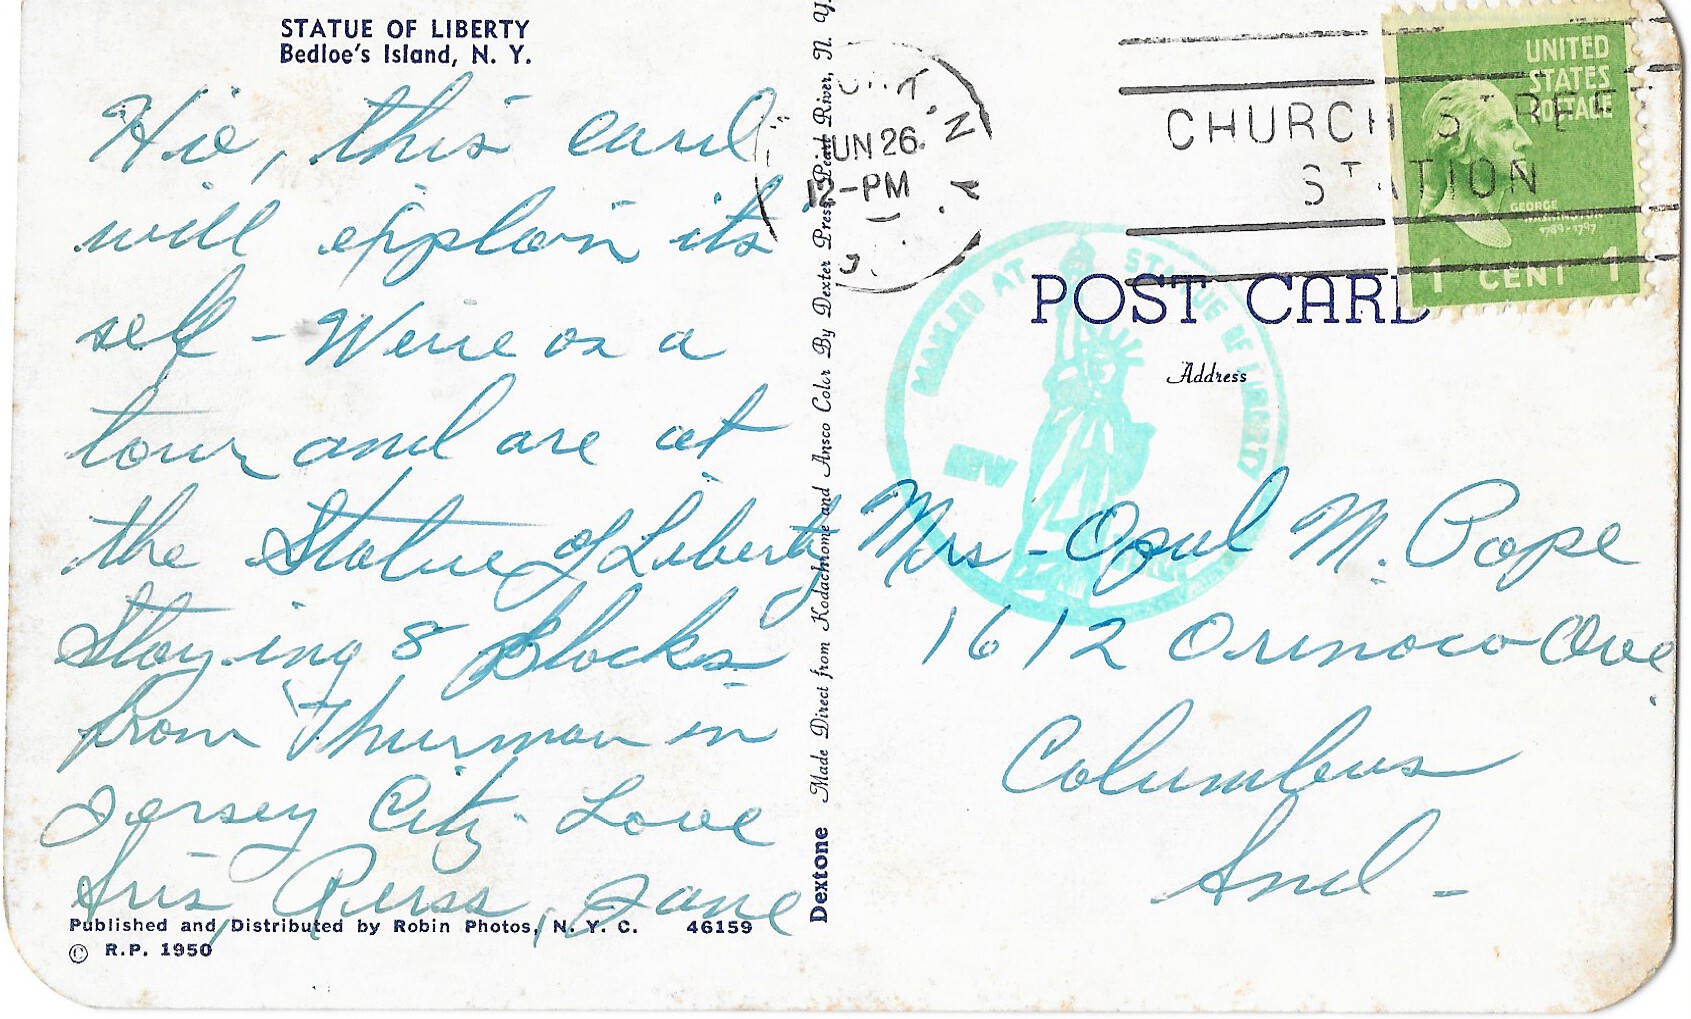 STATUE OF LIBERTY
Bedloe's Island, N. Y.
Hie, this card
will explain its
self - We're on a
tour and are at
the Statue of Liberty
Staying 8 Blocks
from Thurman in
Jersey City. Love
Iris, Russ, Jane
Published and Distributed by Robin Photos, N. Y. C. 46159
© R.P. 1950
Dextone Made Direct from Kodachrome and Ansco Color By Dexter Press, Pearl River, N. Y.
JUN 26
12-PM
N.Y.
CHURCH STREET
STATION
UNITED
STATES
POSTAGE
GEORGE
WASHINGTON
1789-1797
1 CENT 1
POST CARD
Address
MAILED AT STATUE OF LIBERTY
NEW
Mrs - Opal M. Pope
1612 Orinoco Ave.
Columbus
Ind -